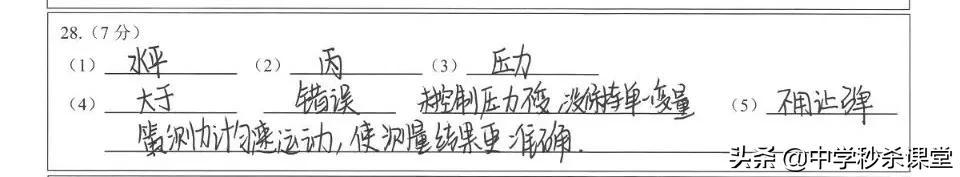 28.（7分）
（1）水平 （2）丙 （3）压力
（4）大于 错误 未控制压力不变,没保持单一变量 （5）不用让弹
簧测力计匀速运动,使测量结果更准确.
头条@中学秒杀课堂